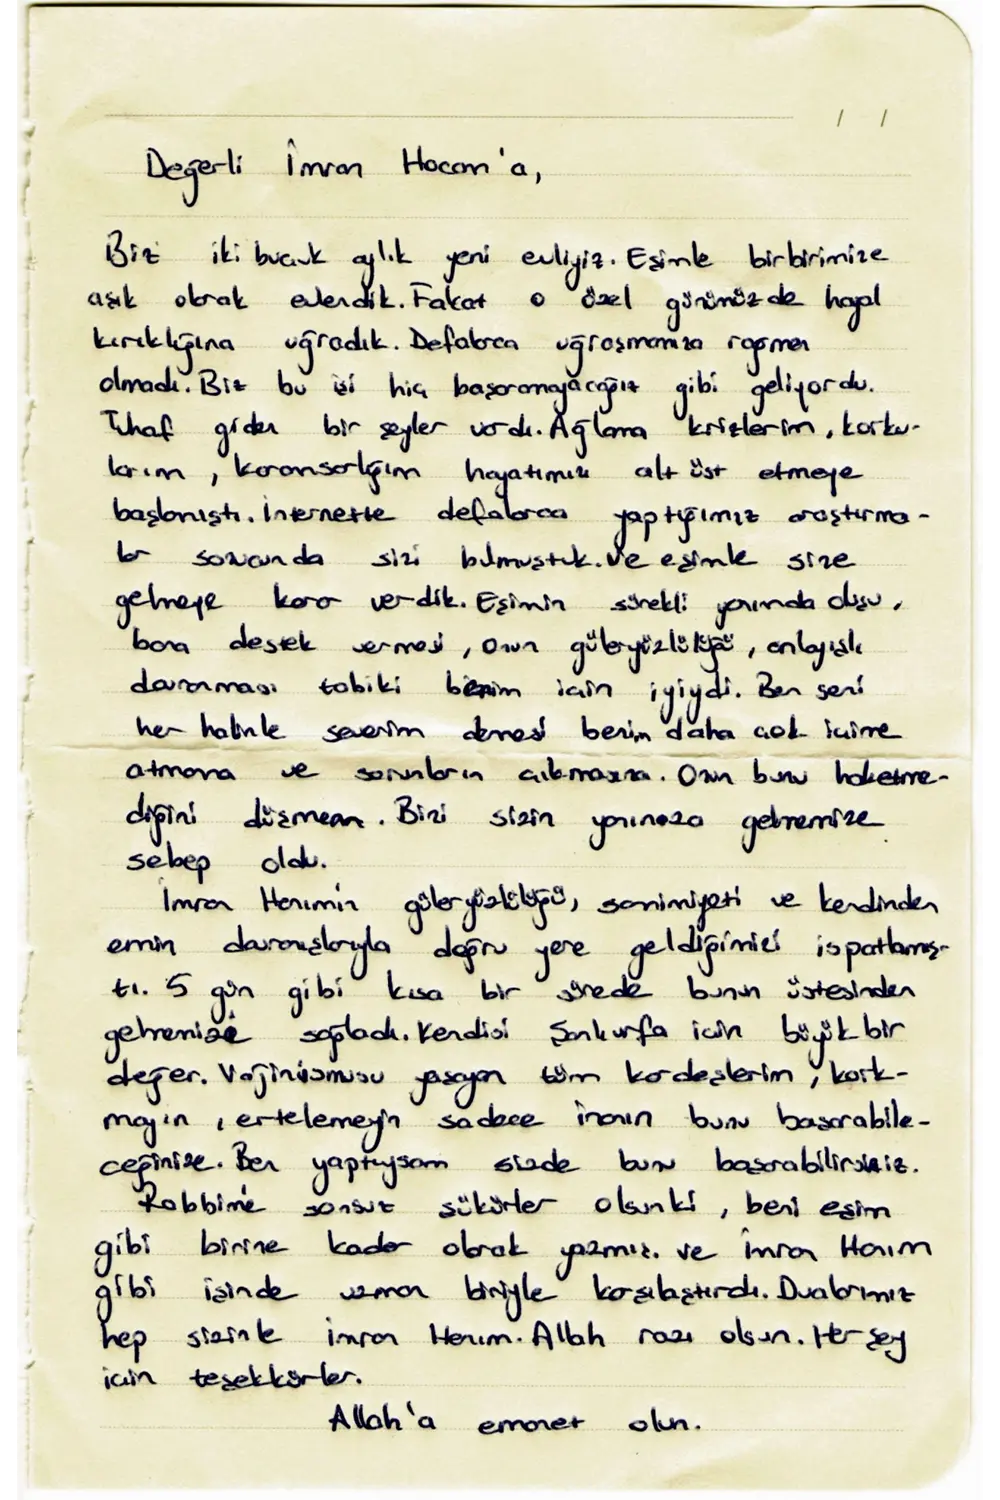 / /
Değerli İmran Hocam'a,
Biz iki buçuk aylık yeni evliyiz. Eşimle birbirimize
aşık olarak evlendik. Fakat o özel günümüzde hayal
kırıklığına uğradık. Defalarca uğraşmamıza rağmen
olmadı. Biz bu işi hiç başaramayacağız gibi geliyordu.
Tuhaf giden bir şeyler vardı. Ağlama krizlerim, korku-
larım, kararsızlığım hayatımızı alt üst etmeye
başlamıştı. İnternette defalarca yaptığımız araştırma-
lar sonucunda sizi bulmuştuk. Ve eşimle size
gelmeye karar verdik. Eşimin sürekli yanımda oluşu,
bana destek vermesi, onun güleryüzlülüğü, anlayışlı
davranması tabiki bizim için iyiydi. Ben seni
her halinle severim demesi benim daha çok içime
atmama ve sorunların çıkmasına. Onun bunu haketme-
diğini düşünmem. Bizi sizin yanınıza gelmemize
sebep oldu.
İmran Hanımın güleryüzlülüğü, samimiyeti ve kendinden
emin davranışlarıyla doğru yere geldiğimizi ispatlamış-
tı. 5 gün gibi kısa bir sürede bunun üstesinden
gelmemize sağladı. Kendisi Şanlıurfa için büyük bir
değer. Vajinismusu yaşayan tüm kardeşlerim, kork-
mayın, ertelemeyin sadece inanın bunu başarabile-
ceğinize. Ben yaptıysam sizde bunu başarabilirsiniz.
Rabbime sonsuz şükürler olsunki, beni eşim
gibi birine kader olarak yazmış. ve İmran Hanım
gibi işinde uzman biriyle karşılaştırdı. Dualarımız
hep sizinle İmran Hanım. Allah razı olsun. Her şey
için teşekkürler.
Allah'a emanet olun.